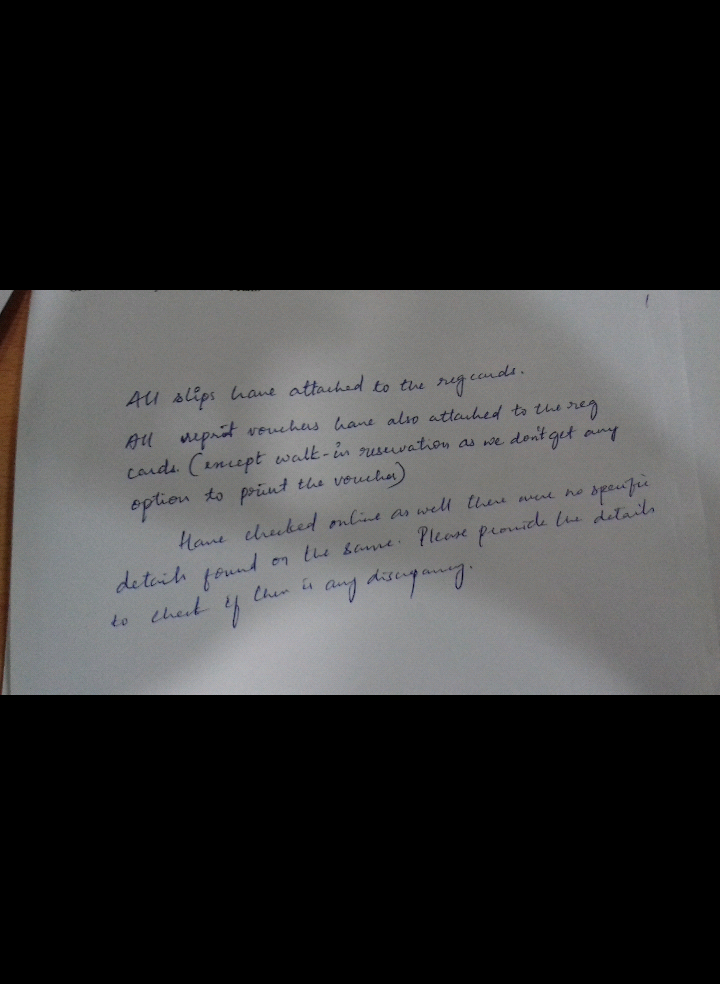 All slips have attached to the reg cards.
All reprint vouchers have also attached to the reg
cards. (except walk-in reservation as we don't get any
option to print the voucher)
Have checked online as well there were no specific
details found on the same. Please provide the details
to check if there is any discrepancy.